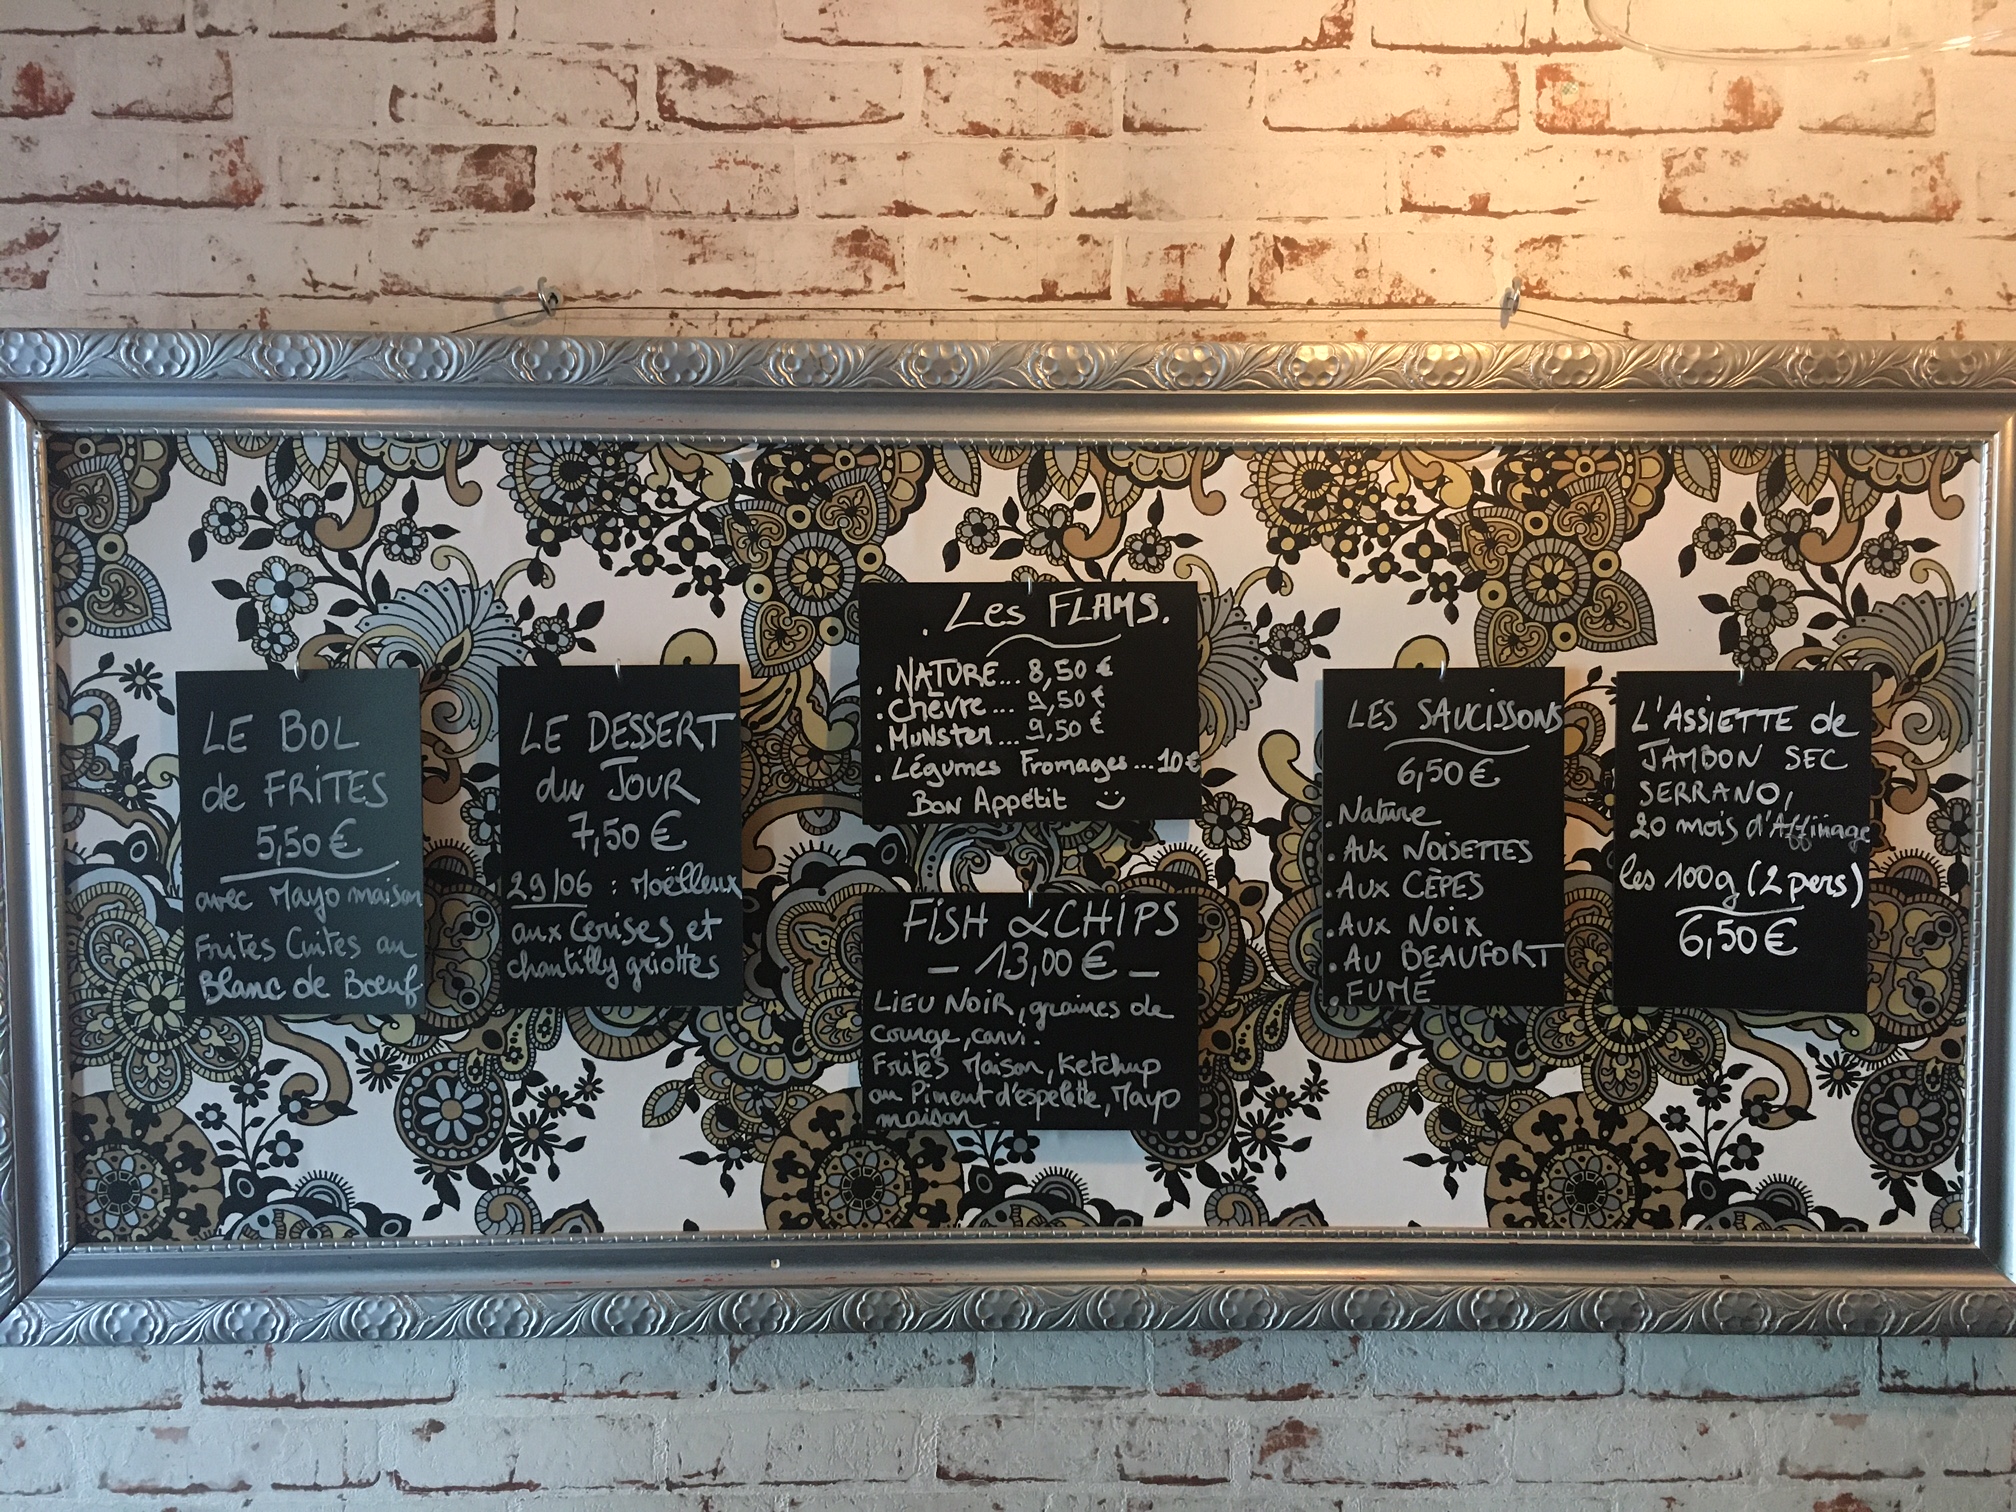 LE BOL
de FRITES
5,50 €
avec Mayo maison
Frites Cuites au
Blanc de Boeuf
LE DESSERT
du JOUR
7,50 €
29/06 : Moëlleux
aux Cerises et
chantilly griottes
. Les FLAMS.
. NATURE... 8,50 €
. Chèvre... 9,50 €
. MUNSter... 9,50 €
. Légumes Fromages ... 10€
Bon Appétit
FISH & CHIPS
– 13,00 € –
LIEU NOIR, graines de
Courge, carvi.
Frites Maison, Ketchup
au Piment d'espelette, Mayo
maison.
LES SAUCISSONS
6,50 €
. Nature
. AUX NOISETTES
. AUX CÈPES
. AUX NOIX
. AU BEAUFORT
. FUMÉ
L'ASSIETTE de
JAMBON SEC
SERRANO,
20 mois d'Affinage
les 100g (2 pers)
6,50 €